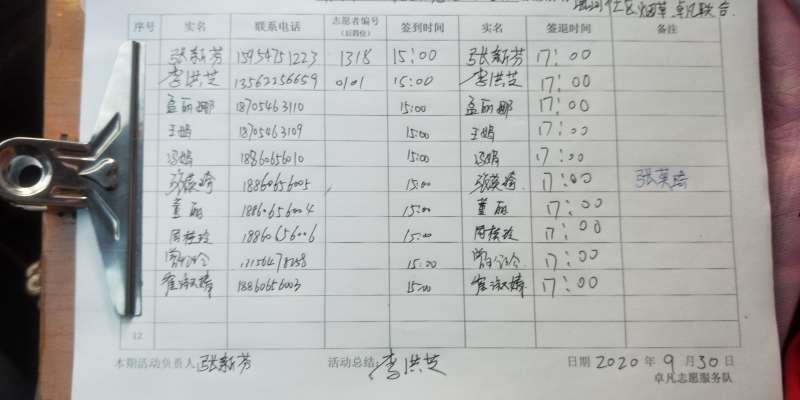 社区烟草 卓凡联合
序号 实名 联系电话 志愿者编号(后四位) 签到时间 实名 签退时间 备注
张新芳 15954751223 1318 15:00 张新芳 17:00
李洪芝 13562256659 0101 15:00 李洪芝 17:00
孟丽娜 18705463110 15:00 孟丽娜 17:00
王娟 18705463109 15:00 王娟 17:00
冯娟 18860656010 15:00 冯娟 17:00
张英琦 18860656005 15:00 张英琦 17:00 张英琦
董丽 18860656004 15:00 董丽 17:00
周桂玲 18860656006 15:00 周桂玲 17:00
15:00 17:00
崔淑婷 18860656003 15:00 崔淑婷 17:00
12
本期活动负责人 张新芳 活动总结: 李洪芝 日期 2020 年 9 月 30 日
卓凡志愿服务队